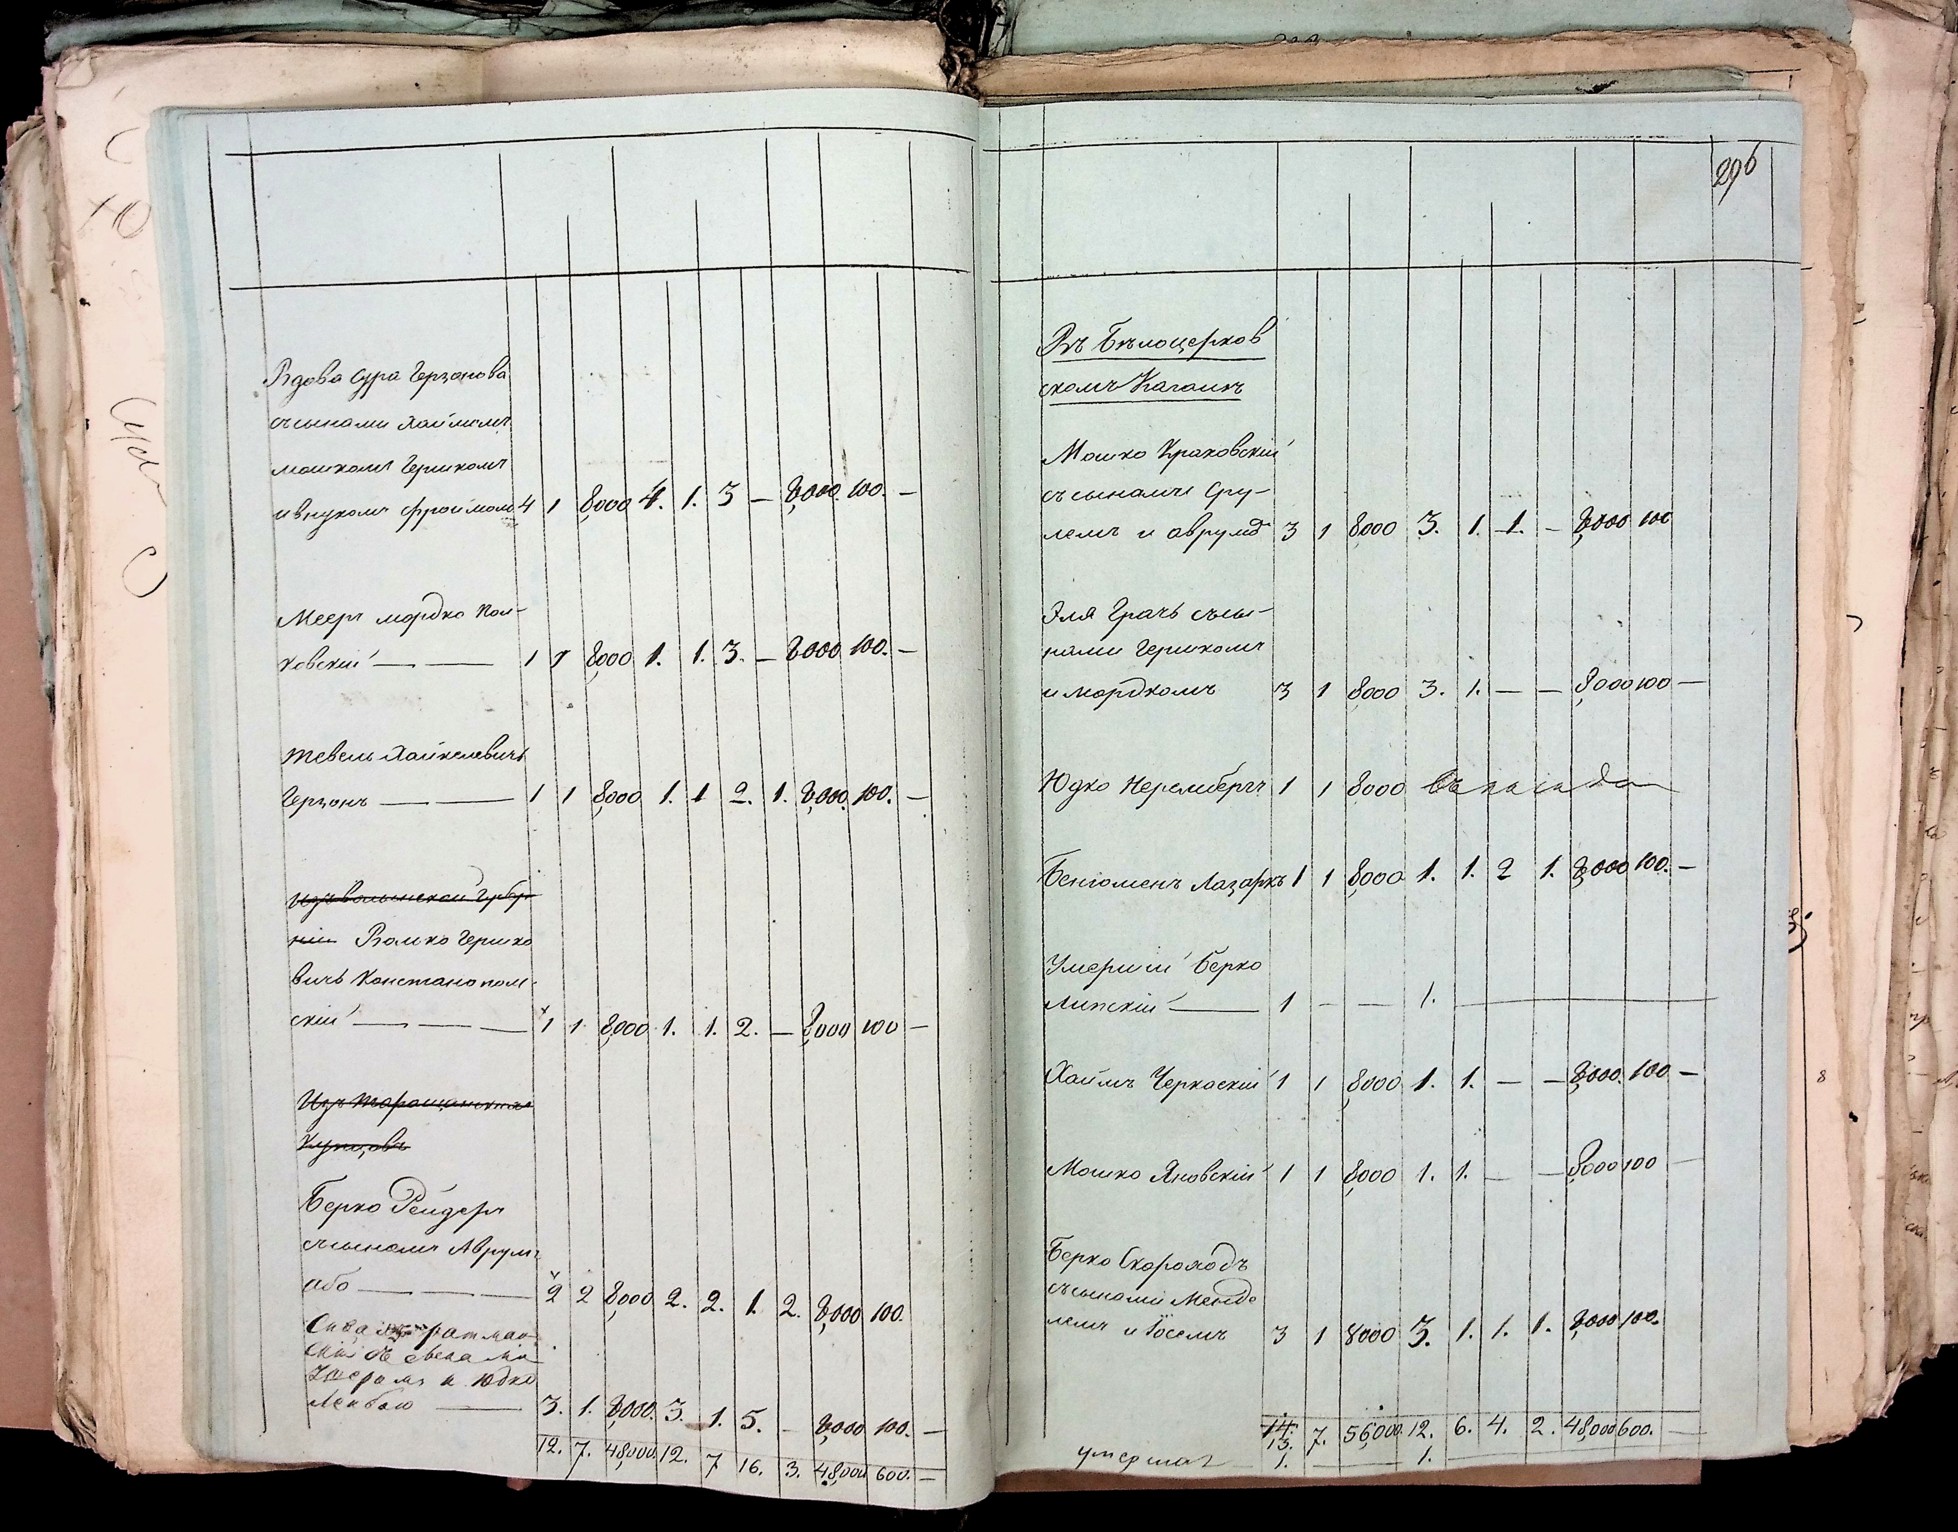 Вдова Сура Герзанова
съ сынами Хаймомъ
Мошкомъ Гершкомъ
и внукомъ Фроймомъ 4 1 8,000 4. 1. 3 — 8,000. 100. —
Мееръ Мордко Пол-
ковскій — — 1 1 8,000 1. 1. 3. — 8000 100. —
Тевель Хайкелевичъ
Герзонъ — — 1 1 8,000 1. 1 2. 1. 8,000. 100. —
Изъ Волынской Губер
ніи Волко Гершко
вичъ Констанопол-
скій — — — 1 1 8,000 1. 1. 2. — 8,000 100 —
Изъ Таращанскихъ
Купцовъ
Берко Рейдеръ
съ сыномъ Аврумъ
або — — — 2 2 8,000 2. 2. 1. 2. 8,000 100.
съ сынами
и Юдко
Лейбою — 3. 1. 8,000. 3. 1. 5. — 8,000 100. —
12. 7. 48,000. 12. 7 16. 3. 48,000 600. —
296
Въ Бѣлоцерков
скомъ Кагалѣ
Мошко Краковскій
съ сынами Сру-
лемъ и Аврумо 3 1 8,000 3. 1. 1. — 8,000 100
Эля Грачъ съ сы-
нами Гершкомъ
и Мордкомъ 3 1 8,000 3. 1. — — 8,000 100 —
Юдко Нерембергъ 1 1 8,000
Бенюменъ Лазаркъ 1 1 8,000 1. 1. 2 1. 8,000 100. —
Умершій Берко
Липскій — 1 — — 1. —
Хаймъ Черкаскій 1 1 8,000 1. 1. — — 8,000. 100 —
Мошко Яновскій 1 1 8,000 1. 1. — — 8,000 100 —
Берко Скороходъ
съ сынами Мендо
лемъ и Іосемъ 3 1 8000 3. 1. 1. 1. 8,000 100.
14.
13. 7. 56,000. 12. 6. 4. 2. 48,000 600. —
умершихъ — 1. — 1. —